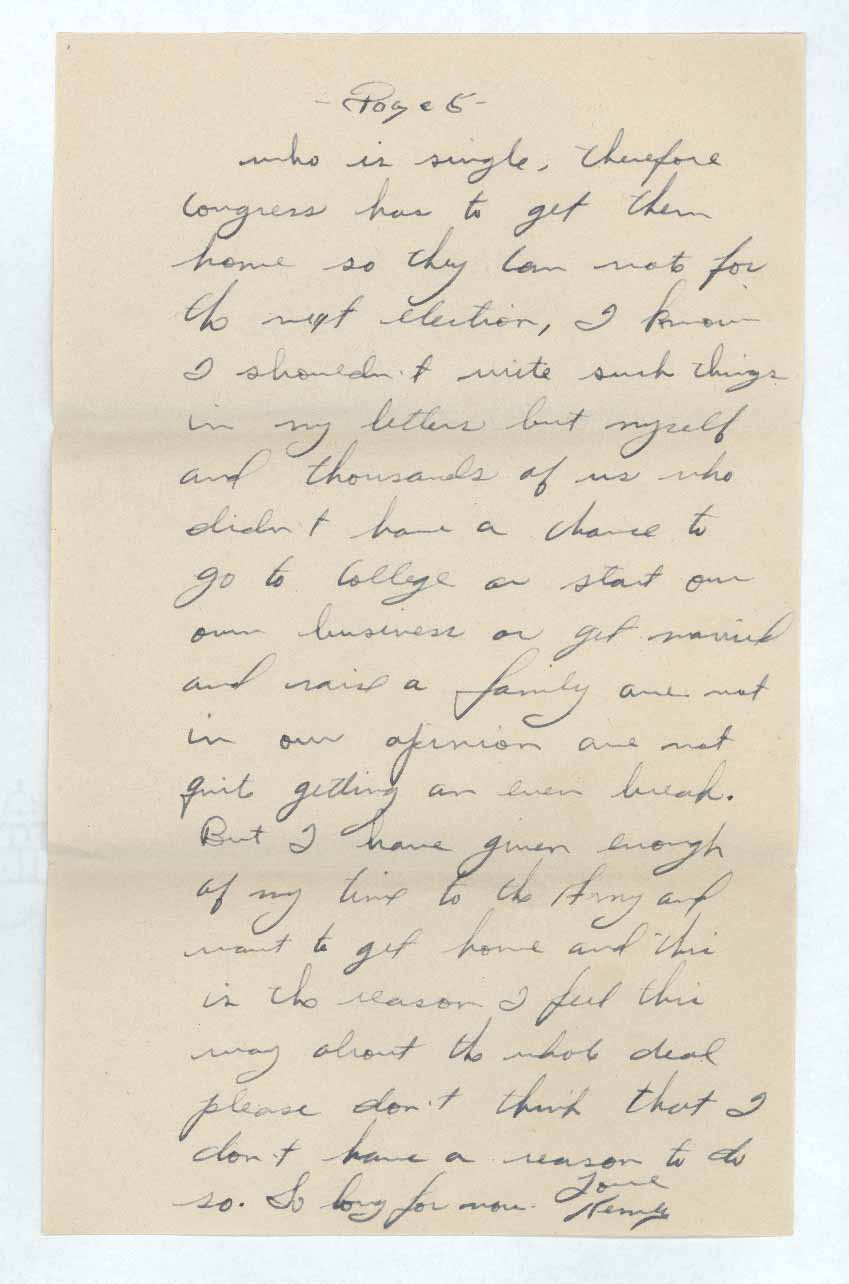 - Page 5 -
who is single, therefore
Congress has to get them
home so they can vote for
the next election, I know
I shouldn't write such things
in my letters but myself
and thousands of us who
didn't have a chance to
go to College or start our
own business or get married
and raise a family are not
in our opinion are not
quite getting an even break.
But I have given enough
of my time to the Army and
want to get home and this
is the reason I feel this
way about the whole deal
please don't think that I
don't have a reason to do
so. So long for now. Love